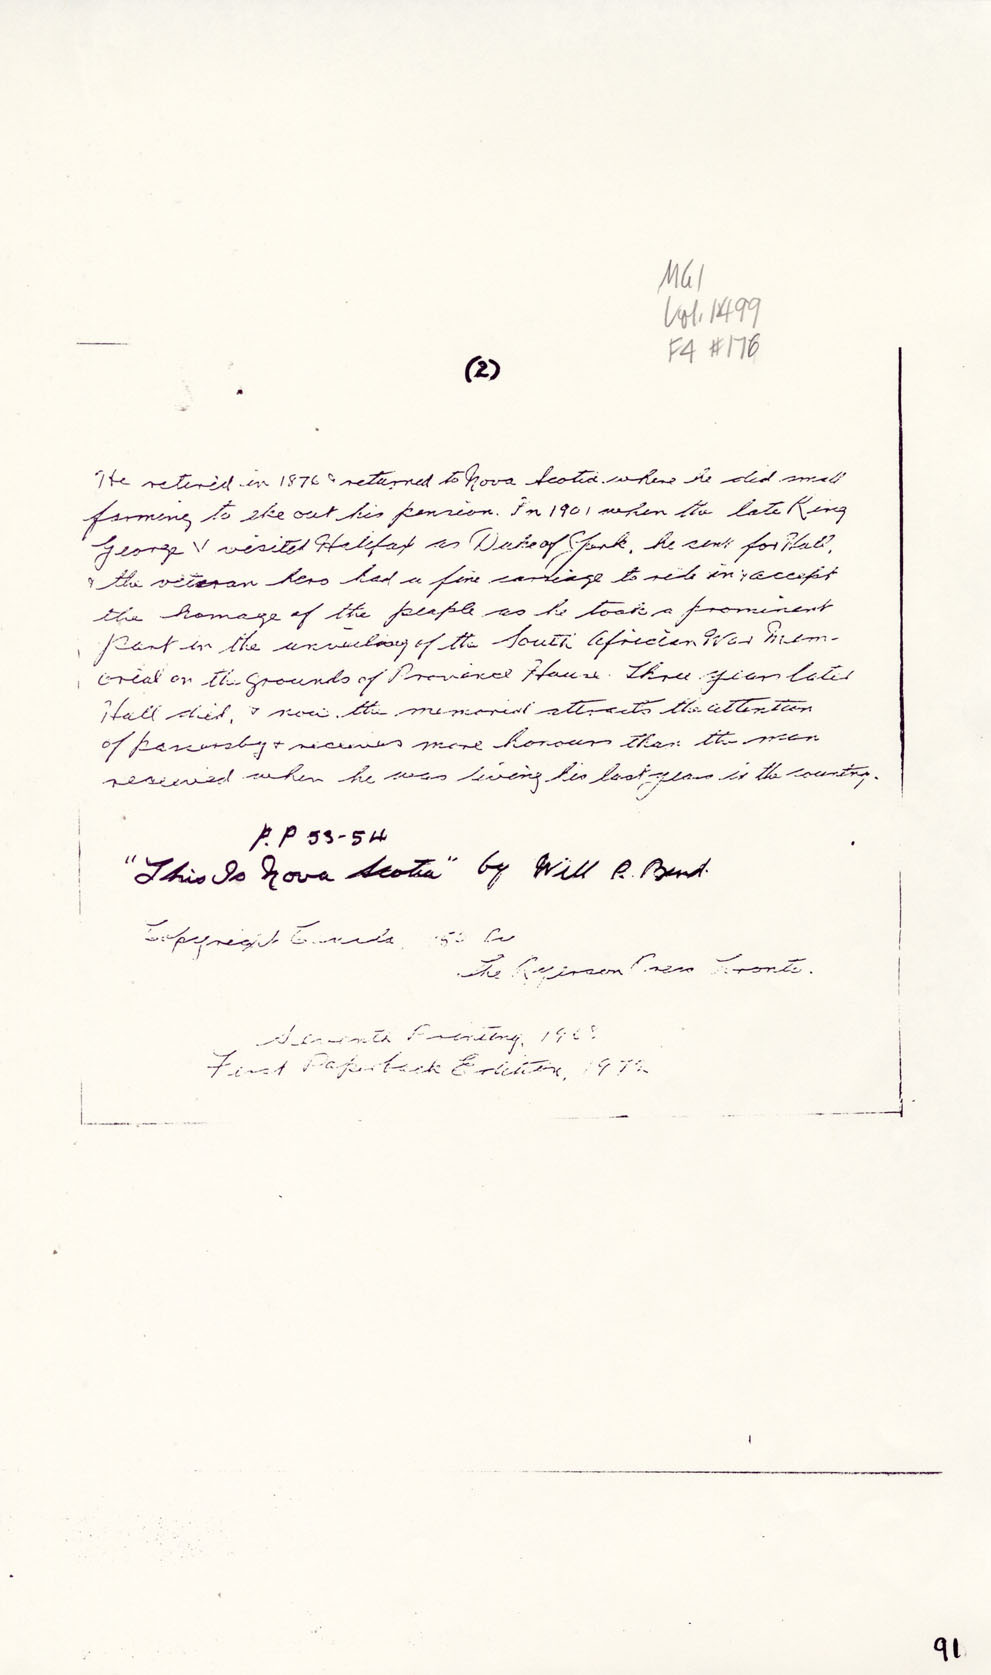 MG1
Vol. 1499
F4 #176
(2)
He retired in 1876 & returned to Nova Scotia where he did small
farming to eke out his pension. In 1901 when the late King
George V visited Halifax as Duke of York, he sent for Hall,
& the veteran hero had a fine carriage to ride in & accept
the homage of the people as he took a prominent
part in the unveiling of the South African War Mem-
orial on the grounds of Province House. Three years later
Hall died, & now the memorial attracts the attention
of passersby & receives more honours than the man
received when he was living his last years in the country.
P.P 53-54
"This Is Nova Scotia" by Will R. Bird.
Copyright Canada,
The Ryerson Press Toronto.
Seventh Printing,
First Paperback Edition,
91